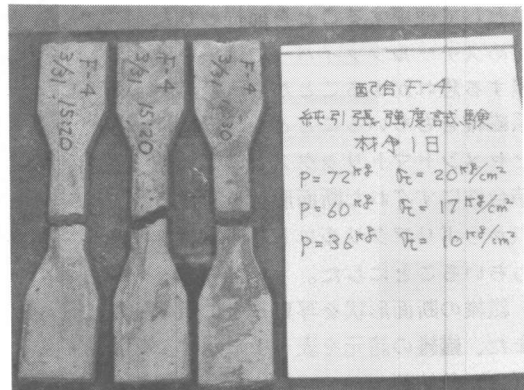 F-4
3/31 15:20
F-4
3/31 15:20
F-4
3/31
配合 F-4
純引張強度試験
材令1日
P=72kg σt=20kg/cm²
P=60kg σt=17kg/cm²
P=36kg σt=10kg/cm²